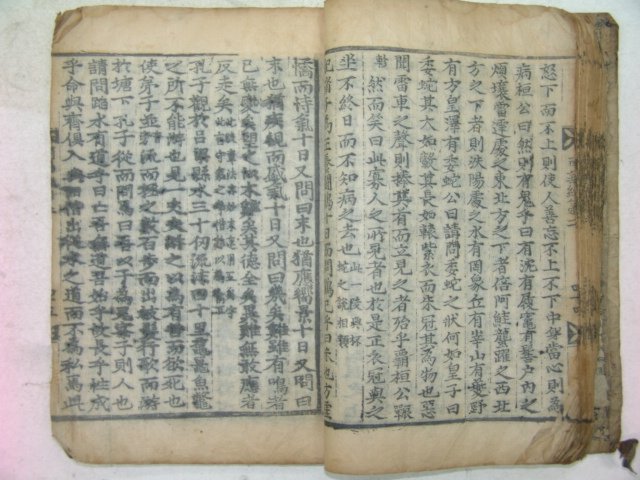 怒下而不上則使人善忘不上不下中身當心則為
病桓公曰然則有鬼乎曰有沈有履竈有髻戶內之
煩壤雷霆處之東北方之下者倍阿鮭蠪躍之西北
方之下者則泆陽處之水有罔象丘有峷山有夔野
有方皇澤有委蛇公曰請問委蛇之狀何如皇子曰
委蛇其大如轂其長如轅紫衣而朱冠其為物也惡
聞雷車之聲則捧其首而立見之者殆乎霸桓公辴
然而笑曰此寡人之所見者也於是正衣冠與之
坐不終日而不知病之去也此一段與杯蛇之說相類
紀渻子為王養鬬鷄十日而問鷄已乎曰未也方虛
憍而恃氣十日又問曰未也猶應嚮景十日又問曰
未也猶疾視而盛氣十日又問曰幾矣雞雖有鳴者
已無變矣望之似木雞矣其德全矣異雞無敢應者
反走矣
孔子觀於呂梁縣水三十仞流沫四十里黿鼉魚鼈
之所不能游也見一丈夫游之以為有苦而欲死也
使弟子並流而拯之數百步而出被髮行歌而游
於塘下孔子從而問焉曰吾以子為鬼察子則人也
請問蹈水有道乎曰亡吾無道吾始乎故長乎性成
乎命與齊俱入與汩偕出從水之道而不為私焉此